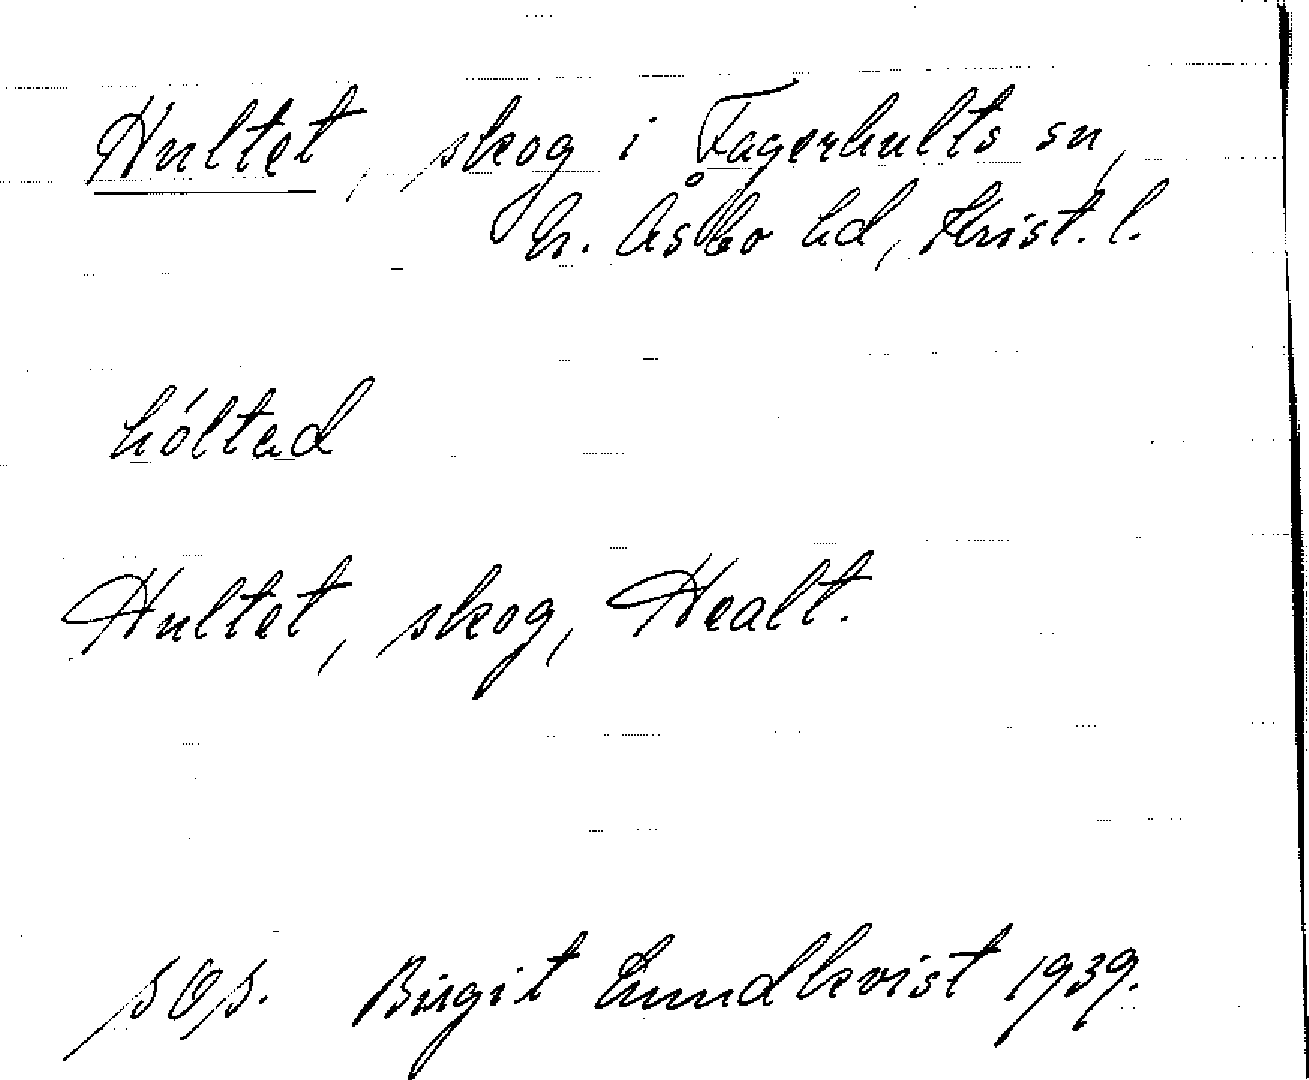 Hultet, skog i Fagerhults sn,
N. Åsbo hd, Krist. l.
hóltad
Hultet, skog, Healt.
Birgit Lundkvist 1939.